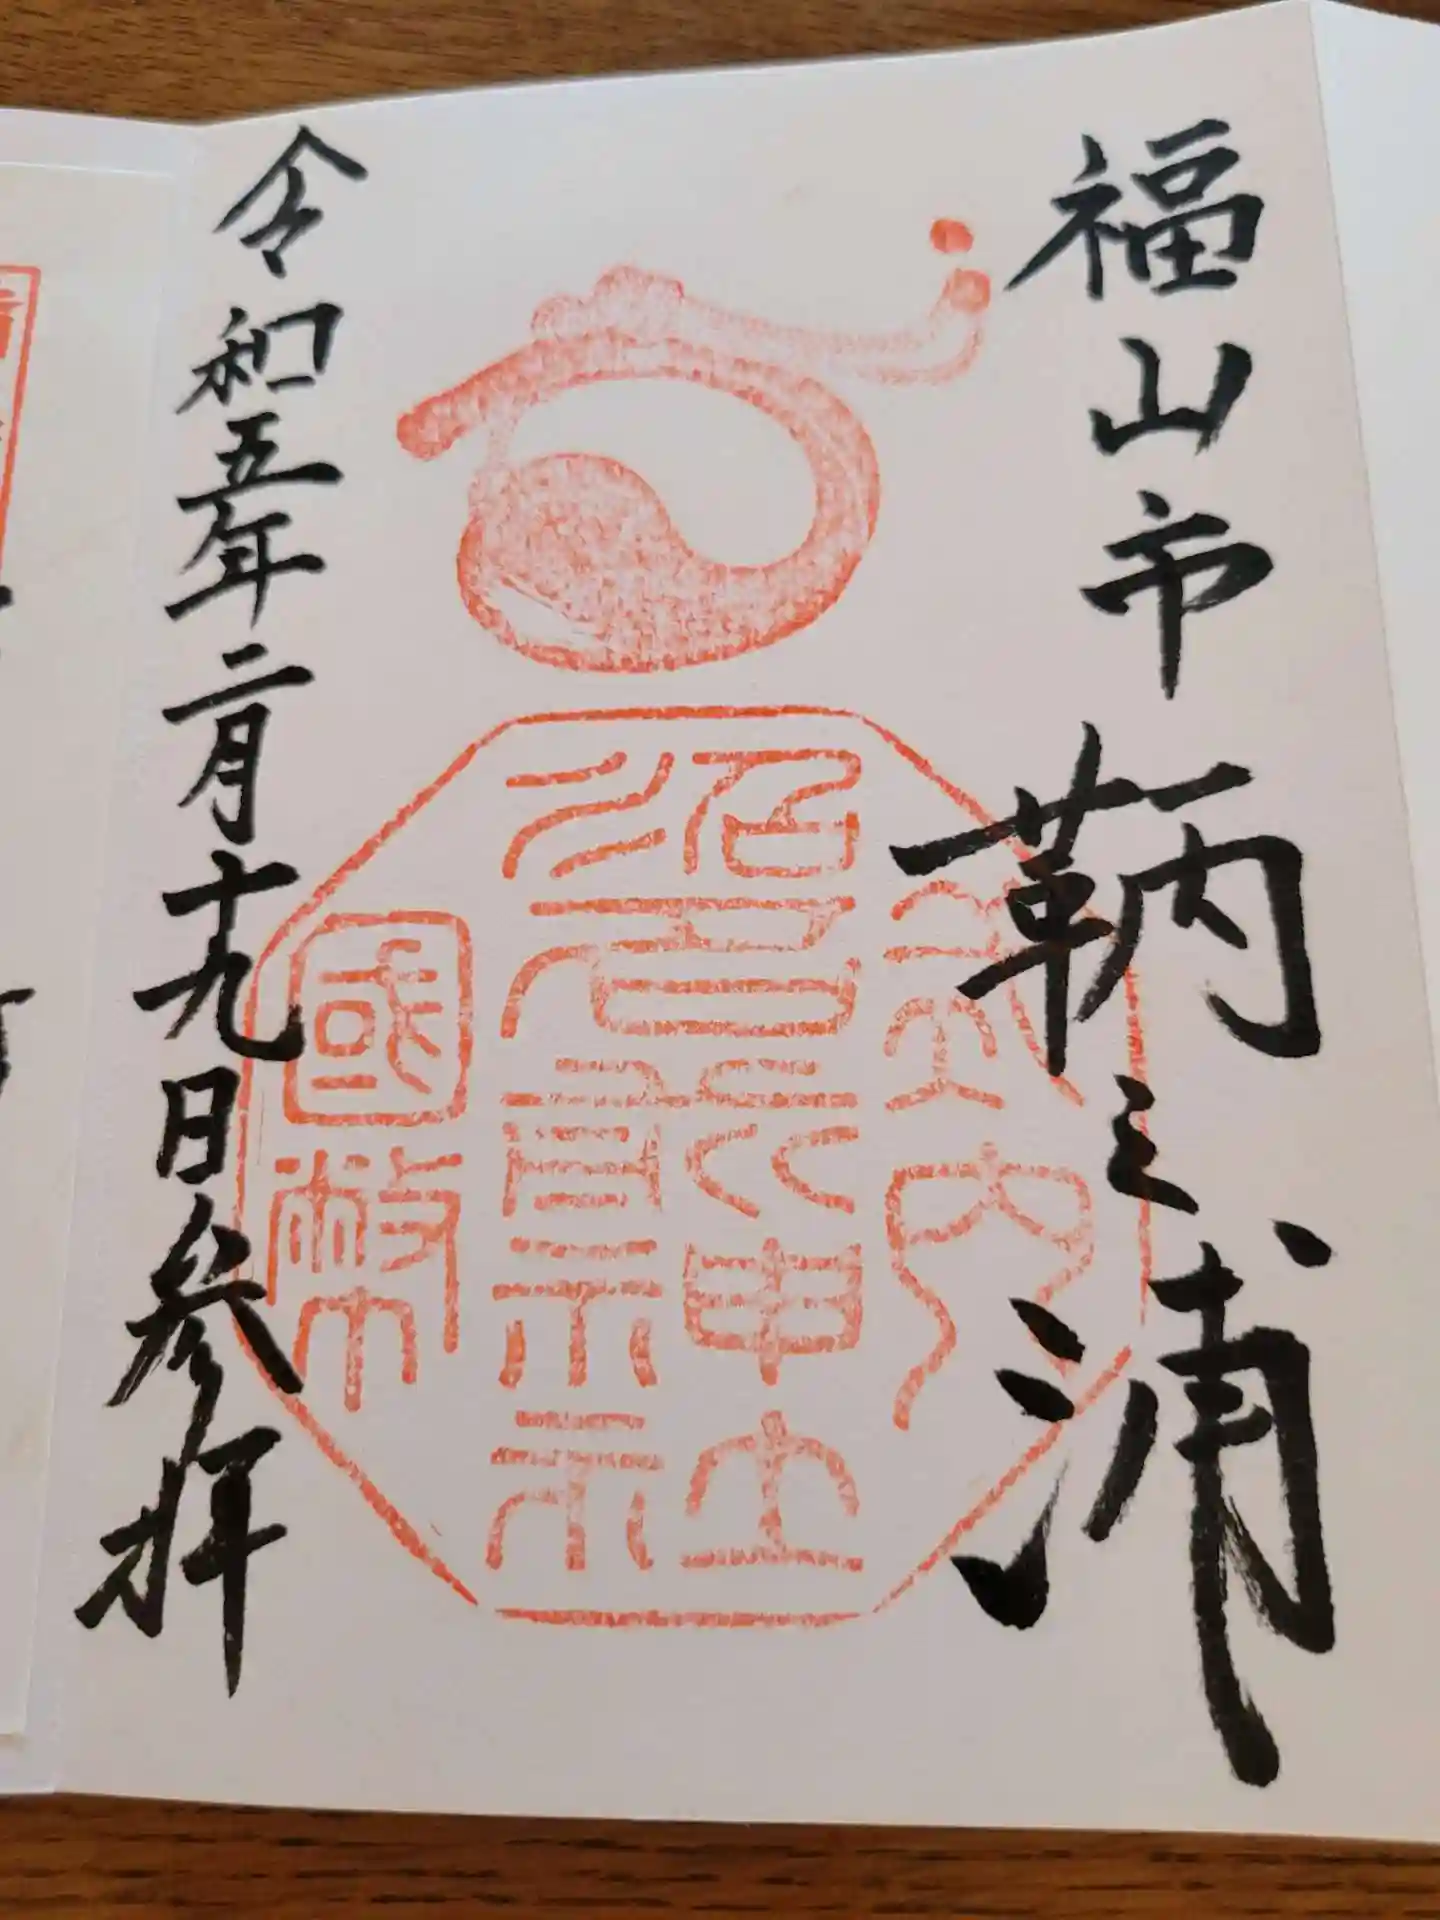 福山市鞆之浦
式内
沼名前神社
國幣
令和五年二月十九日参拝